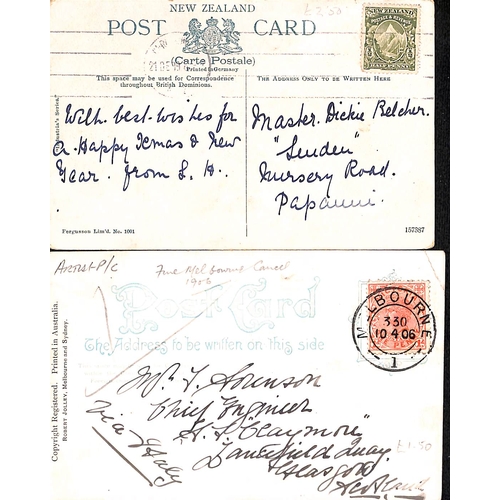 NEW ZEALAND
POST CARD
(Carte Postale)
Printed in Germany
£2.50
NEW ZEALAND
POSTAGE & REVENUE
HALF PENNY
This space may be used for Correspondence
throughout British Dominions.
THE ADDRESS ONLY TO BE WRITTEN HERE
With best wishes for
a Happy Xmas & New
Year from S. H.
Master Dickie Belcher.
"Linden"
Nursery Road.
Papanui.
Fergusson Lim'd. No. 1001
157387
Artist P/C
Fine Melbourne Cancel
1906
Post Card
The Address to be written on this side
MELBOURNE
3 30
10 4 06
1
Copyright Registered. Printed in Australia.
ROBERT JOLLEY, Melbourne and Sydney.
Mr. J. Sorenson
Chief Engineer
S. S. "Claymore"
Lancefield Quay.
Glasgow
Scotland
Via Italy
£1.50